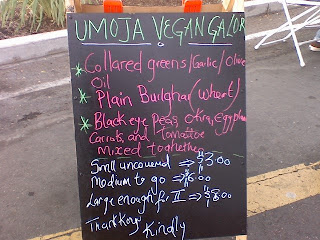 UMOJA VEGAN GALOR
* Collared greens/Garlic/Olive
Oil
* Plain Bulghar (wheat)
* Black eye Peas, Okra, eggplant
Carrots, and Tomatoe
mixed toghether
Small uncovered ⇒ $3.00
Medium to go ⇒ $6.00
Large enough for II ⇒ $8.00
Thank you
Kindly